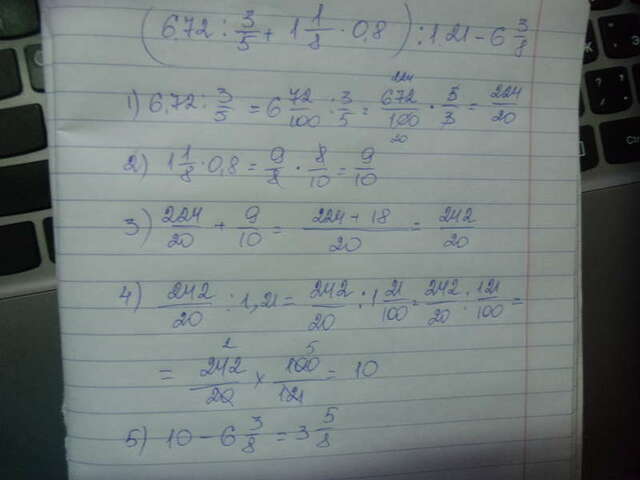 (6,72 : 3/5 + 1 1/8 · 0,8) : 1,21 - 6 3/8
1) 6,72 : 3/5 = 6 72/100 : 3/5 = 672/100 · 5/3 = 224/20
224
20
2) 1 1/8 · 0,8 = 9/8 · 8/10 = 9/10
3) 224/20 + 9/10 = 224 + 18/20 = 242/20
4) 242/20 : 1,21 = 242/20 : 1 21/100 = 242/20 : 121/100 =
2 5
= 242/20 × 100/121 = 10
5) 10 - 6 3/8 = 3 5/8